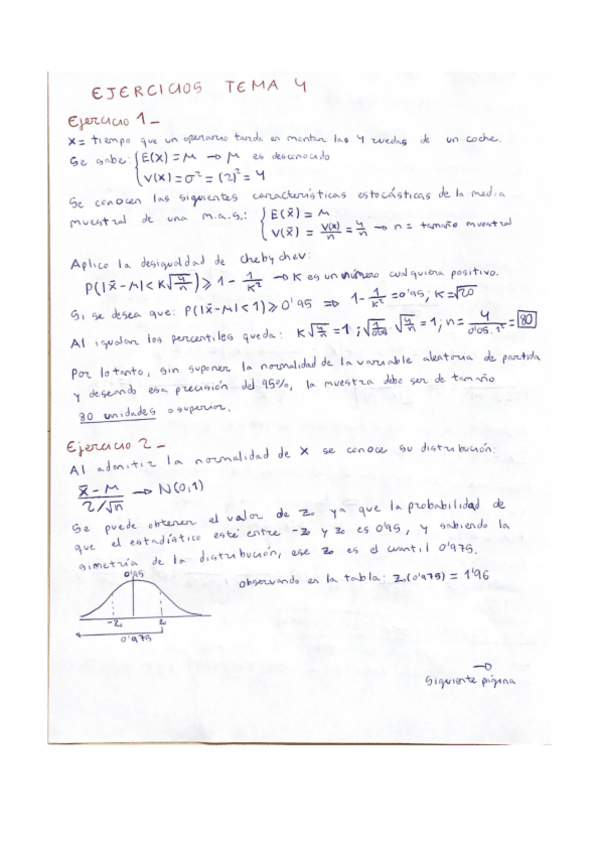 EJERCICIOS TEMA 4
Ejercicio 1_
X = tiempo que un operario tarda en montar las 4 ruedas de un coche.
Se sabe: { E(X) = M → M es desconocido
V(X) = σ² = (2)² = 4
Se conocen las siguientes características estocásticas de la media
muestral de una m.a.s.: { E(x̄) = M
V(x̄) = V(x)/n = 4/n → n = tamaño muestral
Aplico la desigualdad de chebychev:
P(|x̄ - M| < K√(4/n)) ≥ 1 - 1/K² → K es un número cualquiera positivo.
Si se desea que: P(|x̄ - M| < 1) ≥ 0'95 ⇒ 1 - 1/K² = 0'95; K = √20
Al igualar los percentiles queda: K√(4/n) = 1; √(1/0'05) · √(4/n) = 1; n = 4/(0'05 · 1²) = 80
Por lo tanto, sin suponer la normalidad de la variable aleatoria de partida
y deseando esa precisión del 95%, la muestra debe ser de tamaño
80 unidades o superior.
Ejercicio 2_
Al admitir la normalidad de X se conoce su distribución:
(x̄ - M)/(2/√n) → N(0,1)
Se puede obtener el valor de z₀ ya que la probabilidad de
que el estadístico esté entre -z₀ y z₀ es 0'95, y sabiendo la
simetría de la distribución, ese z₀ es el cuantil 0'975.
0'95
observando en la tabla: z₀(0'975) = 1'96
-z₀ z₀
0'975
→
Siguiente página